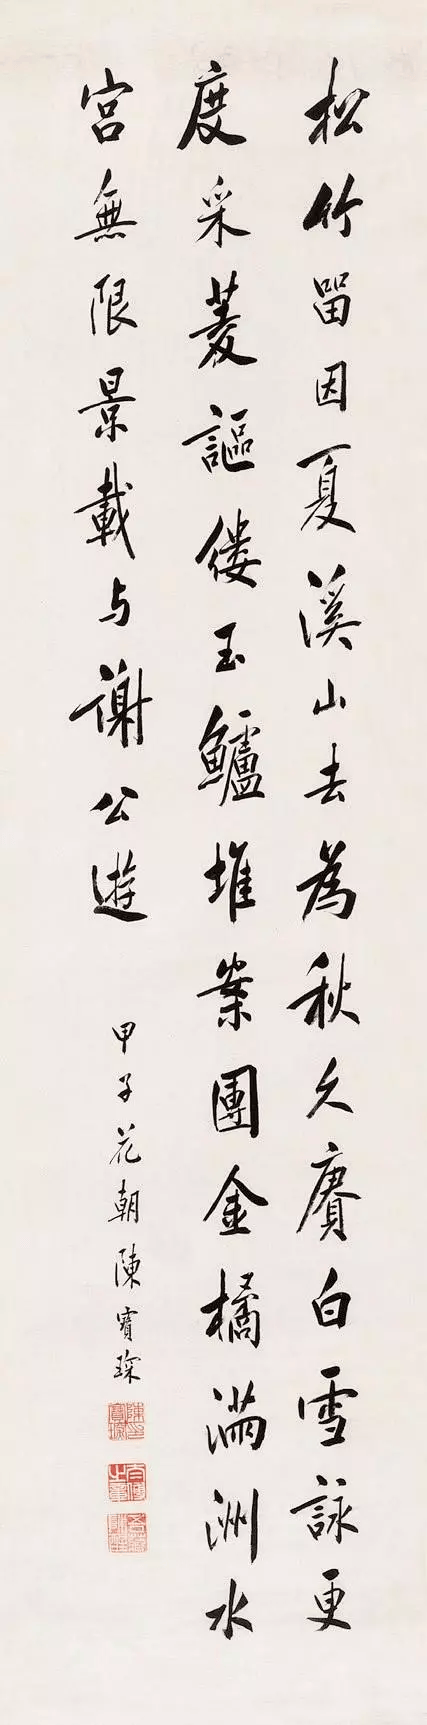 松竹留因夏溪山去為秋久賡白雪詠更
度采菱謳缕玉鱸堆案團金橘滿洲水
宮無限景載与謝公遊
甲子花朝陳寶琛
陳印寶琛
太傅之章